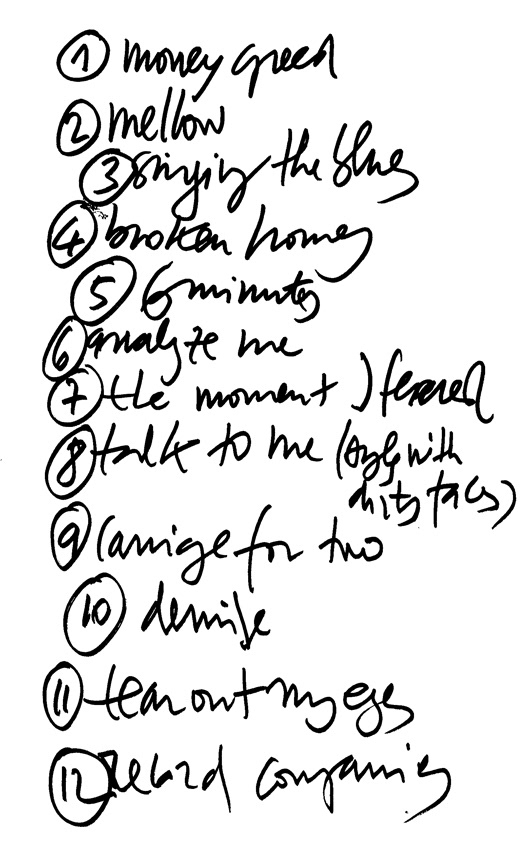 1 money greed
2 mellow
3 singing the blues
4 broken homes
5 6 minutes
6 analyze me
7 the moment I feared
8 talk to me (angels with
dirty faces)
9 carriage for two
10 demise
11 tear out my eyes
12 record companies